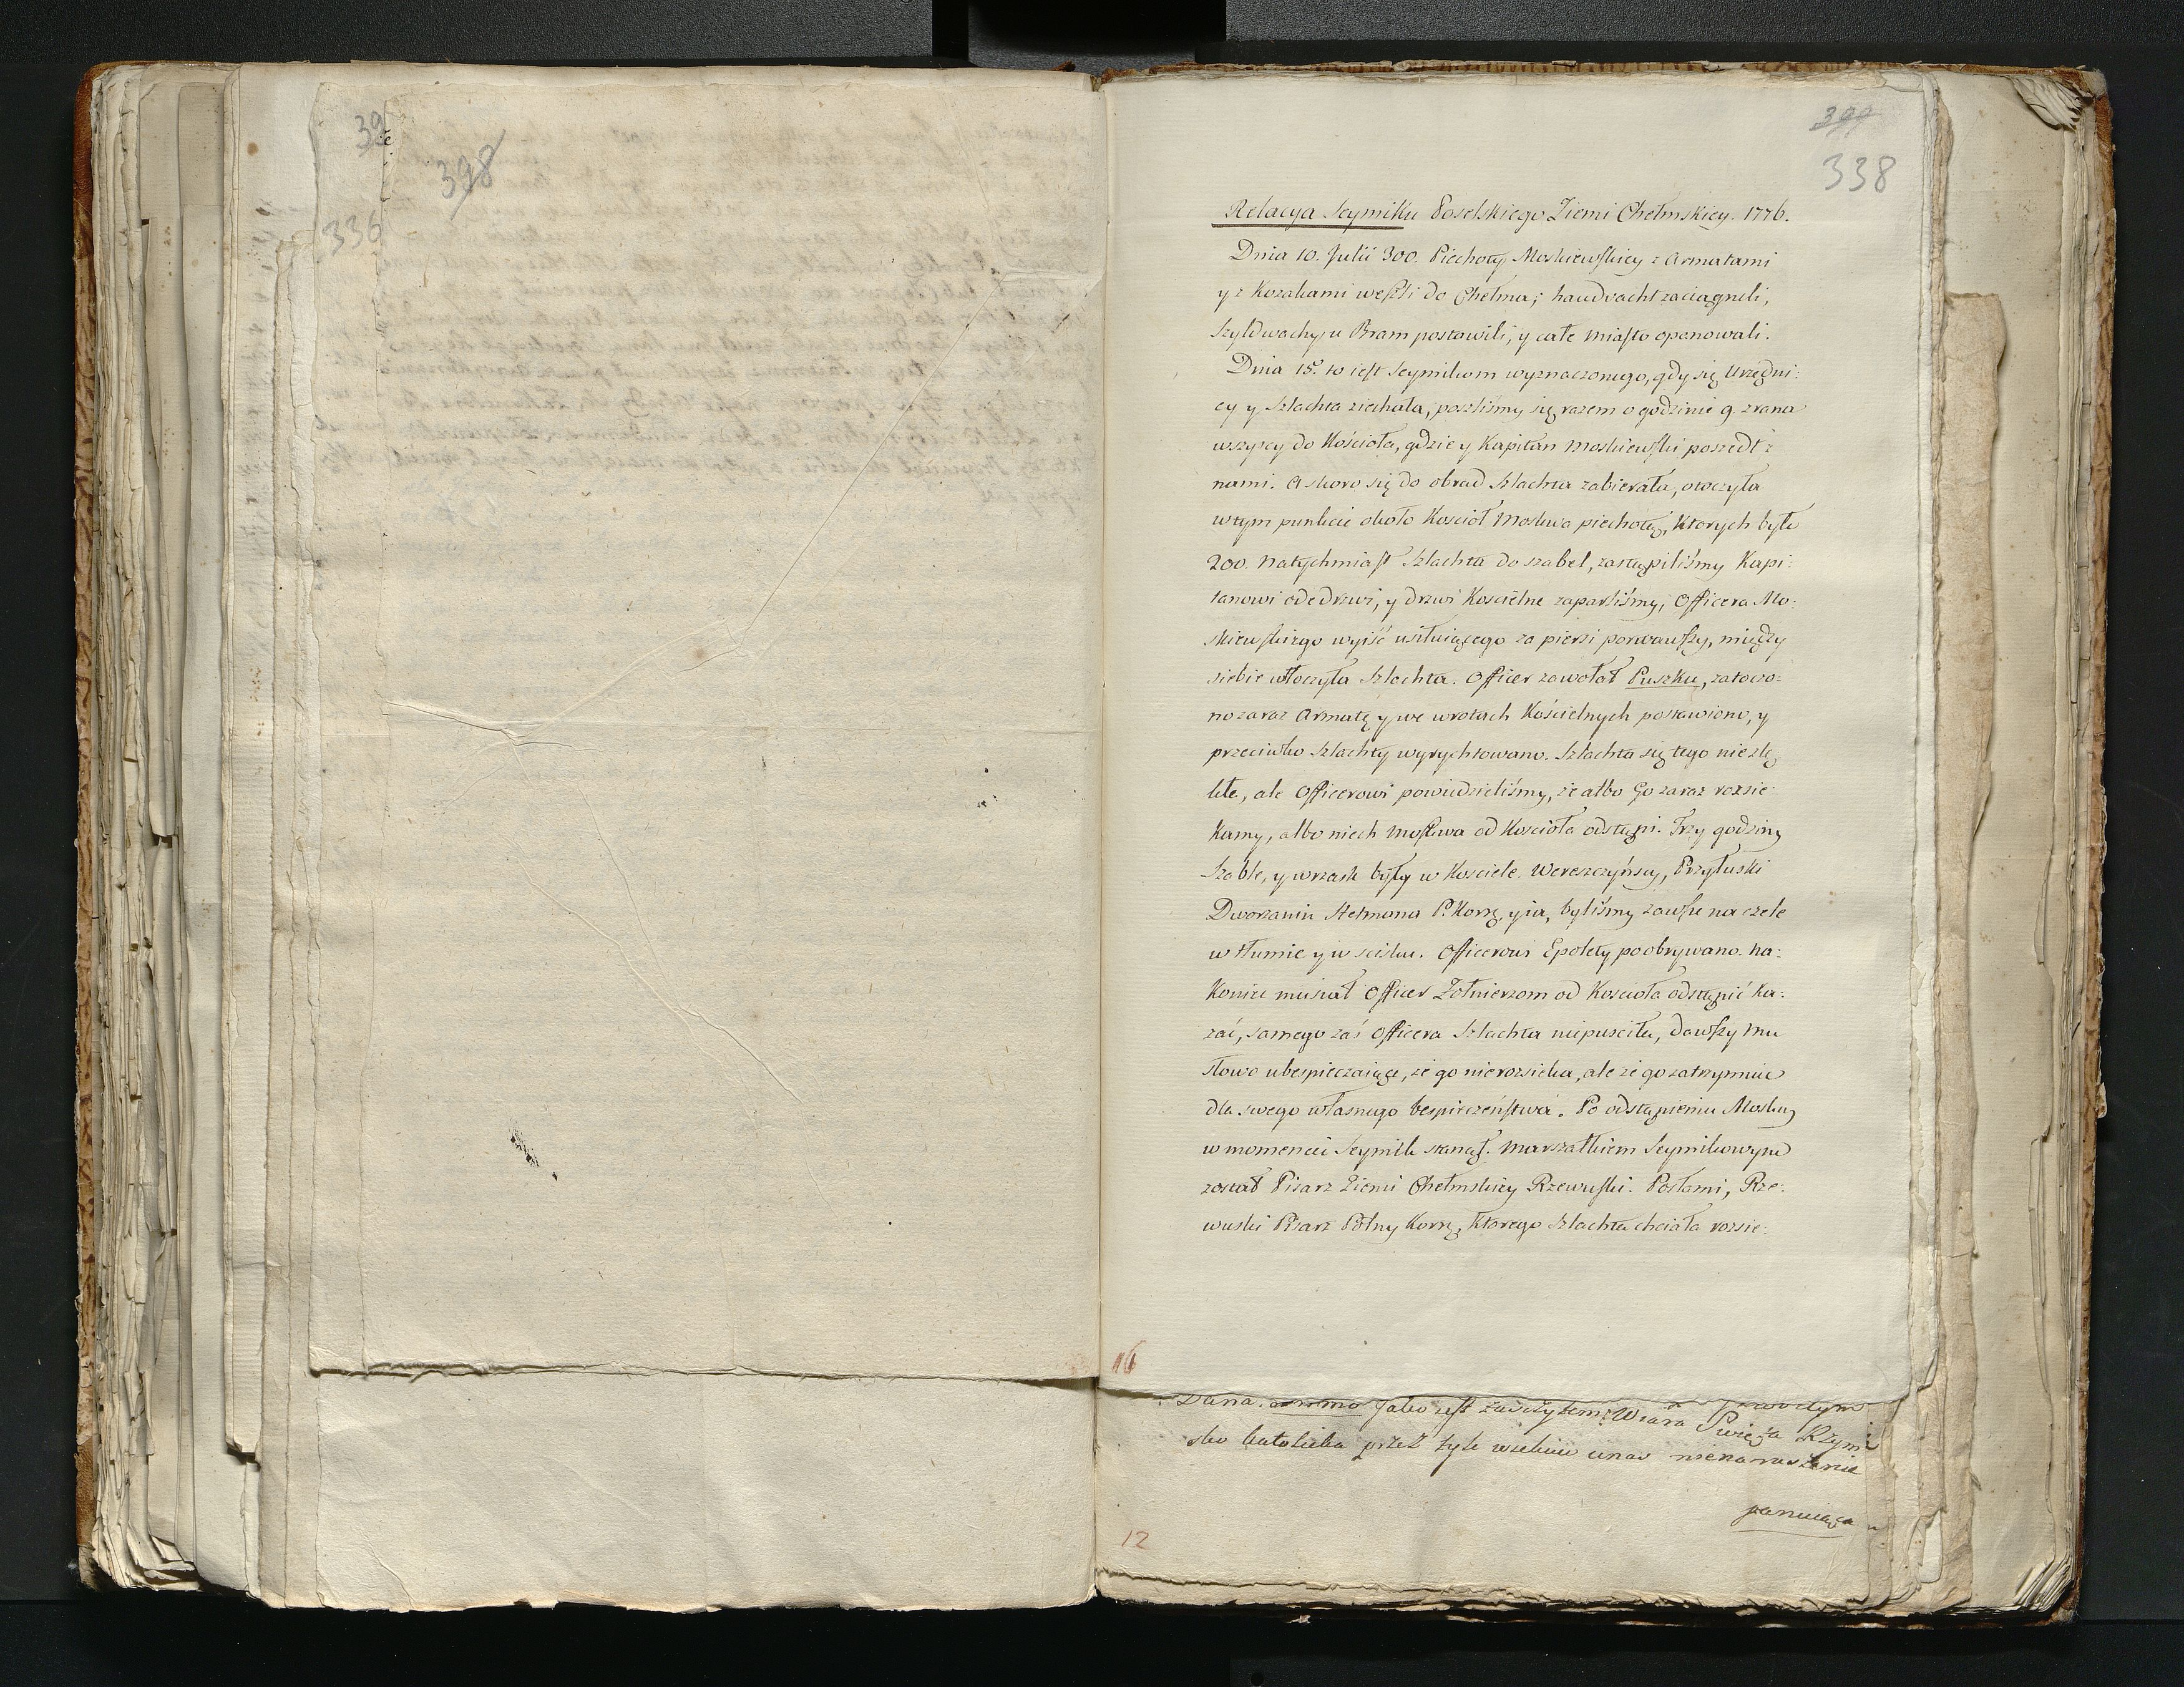 39
398
336
399
338
Relacya Seymiku Poselskiego Ziemi Chełmskiey. 1776.
Dnia 10. Julii 300. Piechoty Moskiewskiey z Armatami
y z Kozakami weszli do Chełma; haudvacht zaciągneli,
Szyldwachy u Bram postawili, y całe miasto opanowali.
Dnia 15º to iest Seymikom wyznaczonego, gdy się Urzędni:
cy y Szlachta ziechała, poszliśmy się razem o godzinie 9. zrana
wszyscy do Kościoła, gdzie y Kapitan Moskiewski poszedł z
nami. A skoro się do obrad Szlachta zabierała, otoczyła
w tym punkcie około Kosciół Moskwa piechotą, ktorych było
200. Natychmiast Szlachta do szabel, zastąpiliśmy Kapi:
tanowi ode drzwi, y drzwi Koscielne zaparliśmy, Officera Mo:
skiewskiego wyiść usiłuiącego za piersi porwawszy, między
siebie wtłoczyła Szlachta. Officer zawołał Puszku, zatoczo:
no zaraz Armatę y we wrotach Kościelnych postawiono, y
przeciwko Szlachty wyrychtowano. Szlachta się tego nie zlę
kła, ale Officerowi powiedzieliśmy, że albo Go zaraz rozsie:
kamy, albo niech Moskwa od Koscioła odstąpi. Trzy godziny
Szable, y wrzask były w Kosciele. Wereszczyńscy, Przyłuski
Dworzanin Hetmana P. Kor: y ia, byliśmy zawsze na czele
w tłumie y w scisku. Officerowi Epolety poobrywano. Na:
koniec musiał Officer Żołnierzom od Koscioła odstąpić ka:
zać, samego zaś Officera Szlachta niepusciła, dawszy mu
słowo ubespieczaiące, że go nierozsieka, ale że go zatrzymuie
dla swego własnego bespieczeństwa. Po odstąpieniu Moskwy
w momencie Seymik stanął. Marszałkiem Seymikowym
został Pisarz Ziemi Chełmskiey Rzewuski. Posłami, Rze:
wuski Pisarz Polny Kor:, ktorego Szlachta chciała rozsie:
16
Dana. Jako iest zaszczytem Wiara Swięta Rzym
sko katolicka przez tyle wiekow u nas nienaruszenie
panuiąca
12